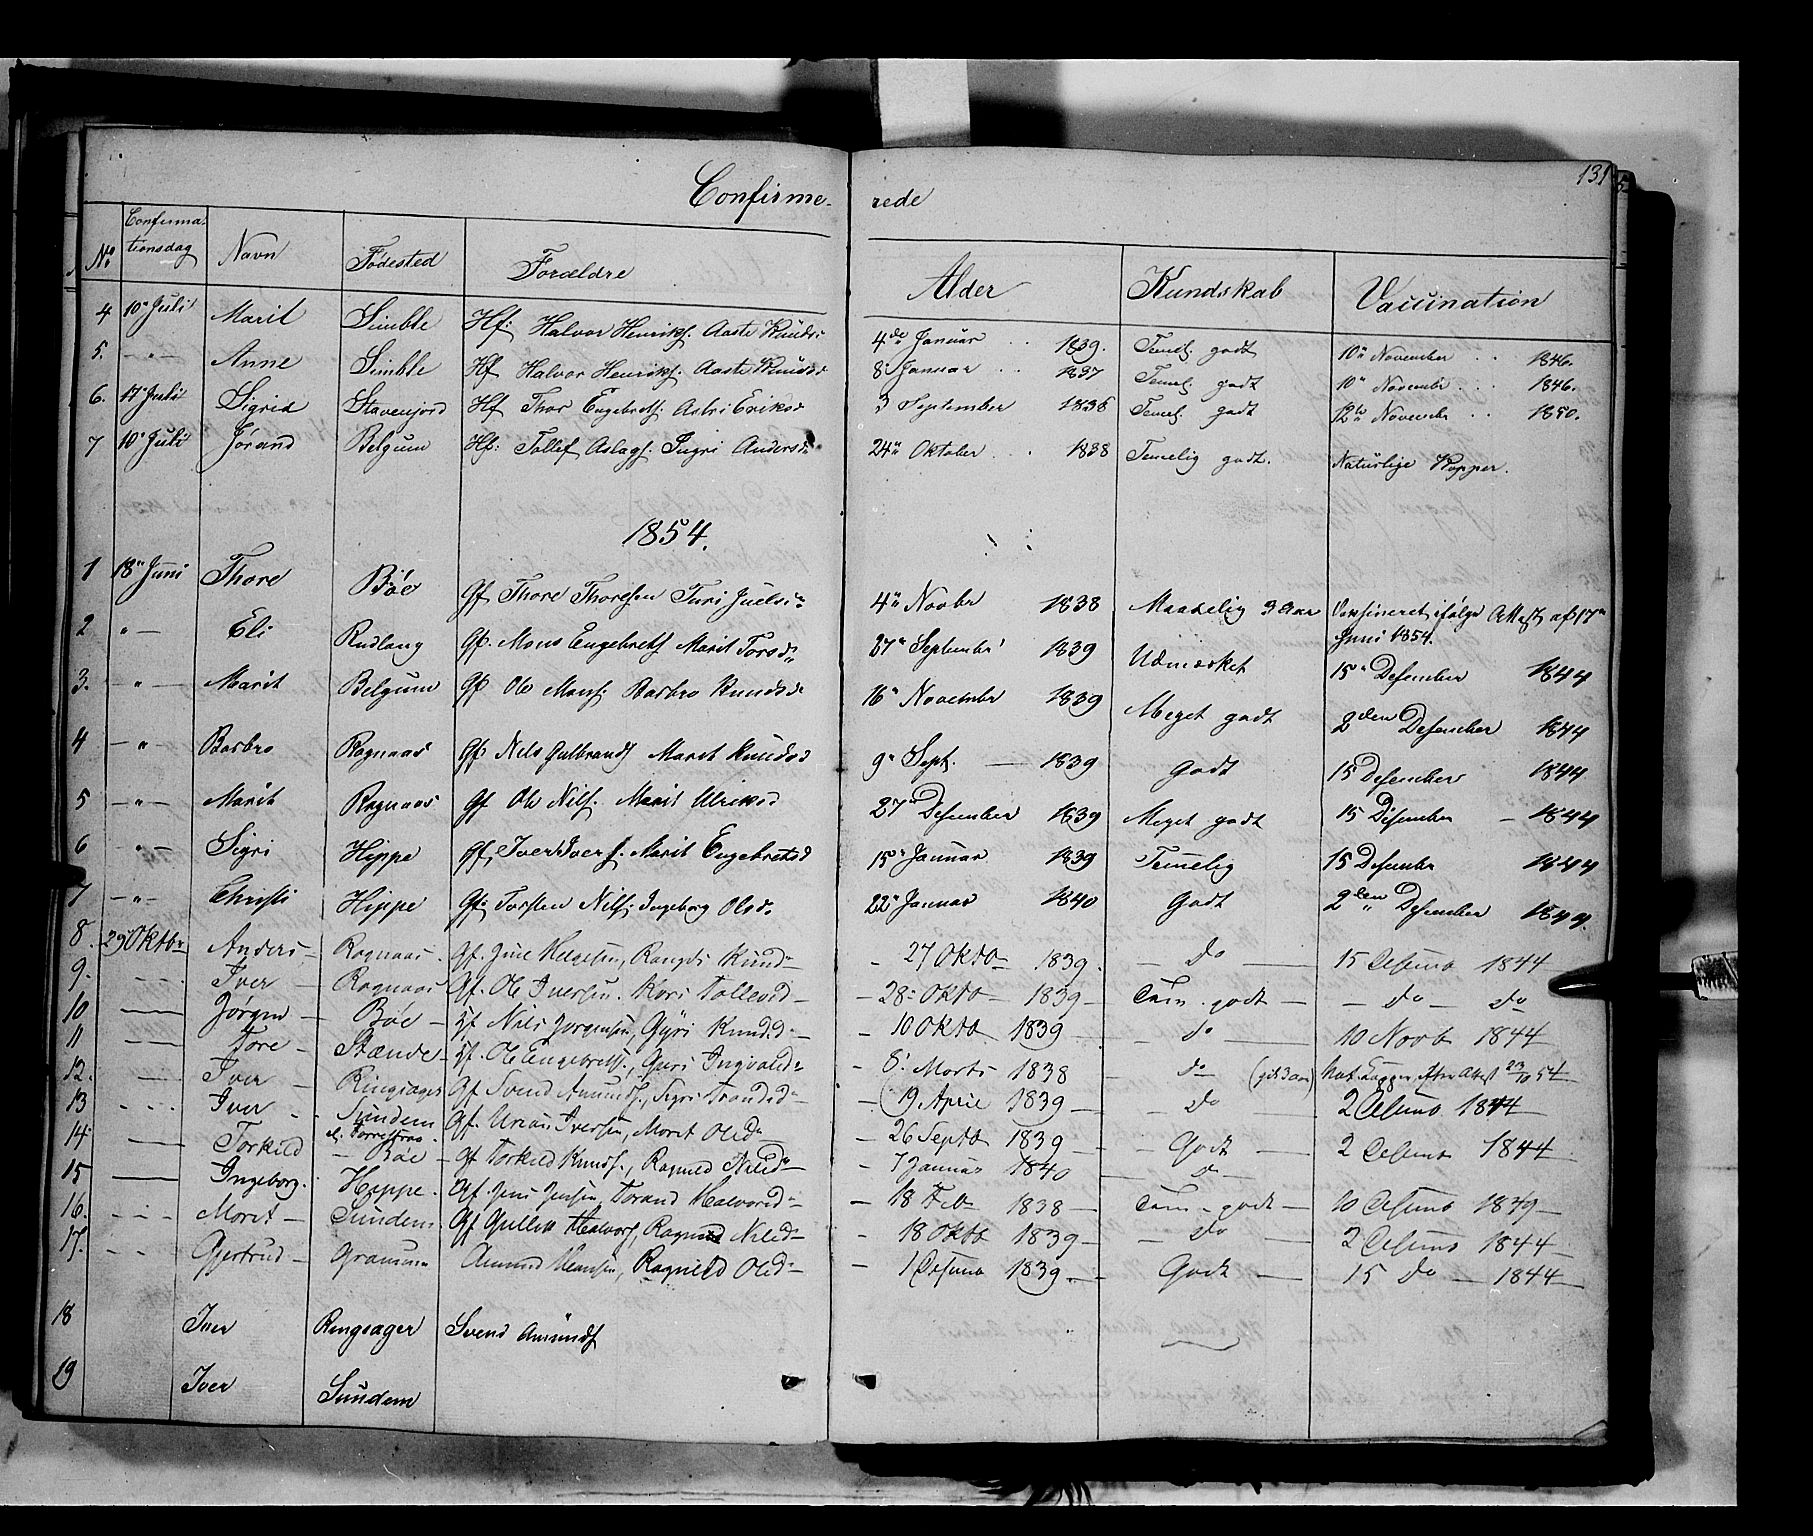 131
Confirme- rede
No. Confirma-tionsdag Navn Fødested Forældre Alder Kundskab Vaccination
4 10de Juli Marit Simble Hf: Halvor Henriks. Aaste Knudsd: 4de Januar 1839. Temel. godt 10de November 1846.
5. - " - Anne Simble Hf Halvor Henriks. Aaste Knudsd 8 Januar 1837 Temel. godt 10de November 1846.
6. Juli Sigrid Stavenjord Hf Thor Engebrets. Eriksd 3 September Temel. godt 12te November 1850.
7 10de Juli Jørand Belgum Hf: Tollef Aslags. Sigri Andersd: 24de Oktober 1838 Temelig godt. Naturlige Kopper.
1854.
1 18de Juni Thore Bøe Gf Thore Thoresen Turi 4de Novbr 1838 Maadelig Vaxineret ifølge Attest af 17de
Juni 1854.
2 " - Eli Rudlang Gf. Mons Engebrets Marit Torsd: 27de September 1839 Udmærket 15de Desember 1844
3. - " - Marit Belgum Gf Ole Mons. Barbro Knudsd: 16de November 1839 Meget godt 2den Desember 1844
4 - " - Barbro Rognaas Gf Nils Gulbrands Marit Knudsd 9de Sept. - 1839 Godt 15 Desember 1844
5 - " - Marit Rognaas Gf Ole Nils. Marit Ulriksd 27de Desember 1839 Meget godt 15 Desember - 1844
6 - " - Sigri Hippe Gf, Iver Ivers. Marit Engebretsd 15de Januar 1839 Temmelig 15 Desember 1844
7 - " - Christi Hippe Gf: Torsten Nils. Ingeborg Olsd: 22de Januar 1840 Godt 2den Desember 1844.
8. 29 Oktbr Anders - Rognaas - Gf. Helgesen, Knudsd - 27 Oktb 1839. - Do - 15 Desemb 1844
9. - - - Iver - Rognaas Gf. Ole Iversen. Kari Tollevsd - - 28 Oktb - 1839 - Tem. godt - - do - do
10 - Jørgen - Bøe - Gf. Nils Jørgensen, Knudsd - - 10 Oktb 1839 - do 10 Novb 1844
11 - Tore - Stende - Gf. Ole Engebrets., Guri Ingvaldsd - - 8. Marts 1838 - do Nat. Kopper efter Attest 54
12. - Iver - Ringsager Gf Svend Amunds., Sigri Trondsd - - 19 April 1839 - - Do 2 Desemb 1844
13 - - - Iver - Sundem Gf. Iversen, Marit Olsd - - 26 Septb 1839 - - Godt - 2 Desemb 1844
14 - Torkild - Bøe - Gf Torkild Knuds., Ragnild Nilsd - - 7 Januar 1840 - D -
15 - Ingeborg - Hippe - Gf. Jens Jensen, Torand Halvorsd - - 18 Feb 1838 - Tem - godt - 10 Desemb 1849 -
16. - - - Marit - Sundem - Gf Gullik Halvors, Ragnild Nilsd - - 18 Oktb 1839 - - Do - 2 Desemb 1844 -
17. - - Gjertrud - Amund Hansen, Ragnild Olsd - - 1 Desemb 1839 - - Godt - 15 do - 1844 -
18 Iver Ringsager Svend Amunds
19 Iver Sundem